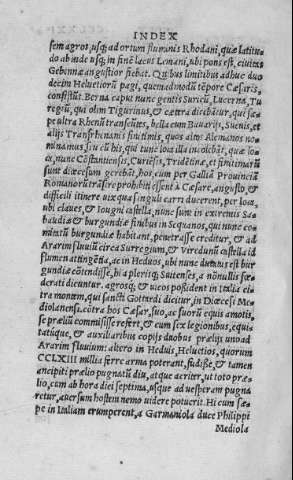 INDEX
sem agros, usq; ad ortum fluminis Rhodani, quæ latitu
do ab inde usq; in finē lacus Lemani, ubi pons est, ciuitas
Gebennæ angustior fiebat. Quibus limitibus adhuc duo
decim Heluetiorū pagi, quemadmodū tēpore Cæsaris,
consistūt. Berna caput nunc gentis Suricū, Lucerna, Tu
regiū, qui olim Tigurinus, & cætera dicebātur, qui sæ-
pe ultra Rhenū transeūtes, bella cum Bauaris, Sueuis, et
alijs Transrhenanis finitimis, quos alto Alemanos no-
minamus, siu cū his, qui tunc loca illa incolebāt, quæ lo
ca, nunc Cōstantiensis, Curiēsis, Tridētinæ, et finitimarū
sunt diœcesum gerebāt, hos, cum per Galliā Prouinciā
Romanorū trāsire prohibiti essent à Cæsare, angusto, &
difficili itinere uix qua singuli carri ducerent, per loca,
ubi claues, & Iougni castella, nunc sunt in extremis Sa-
baudiæ & burgundiæ finibus in Sequanos, qui nunc co-
mitatū burgundiæ habitant, penetrasse creditur, & ad
Ararim fluuiū circa Surregium, & Viredunū castella id
flumen attingētia, ac in Heduos, ubi nunc ducatus est bur
gundiæ cōtendisse, bi a plerisq; Suitenses, a nonullis fœ-
derati dicuntur. agrosq; & uicos possident in Italia ci-
tra montem, qui sancti Gottardi dicitur, in Diœcesi Me
diolanensi. cōtra hos Cæsar, suo, ac suorū equis amotis,
se prælium commisisse refert, & cum sex legionibus, equi
tatuque, & auxiliaribus copijs duobus prælijs uno ad
Ararim fluuium: altero in Heduis, Heluetios, quorum
CCLXIII millia ferre arma poterant, fudisse, & tamen
ancipiti prælio pugnatū diu, atque acriter, ut toto præ-
lio, cum ab hora diei septima, usque ad uesperam pugna
retur, auersum hostem nemo uidere potuerit. Hi cum sæ-
pe in Italiam erumperent, a Garmaniola duce Philippi
Mediola